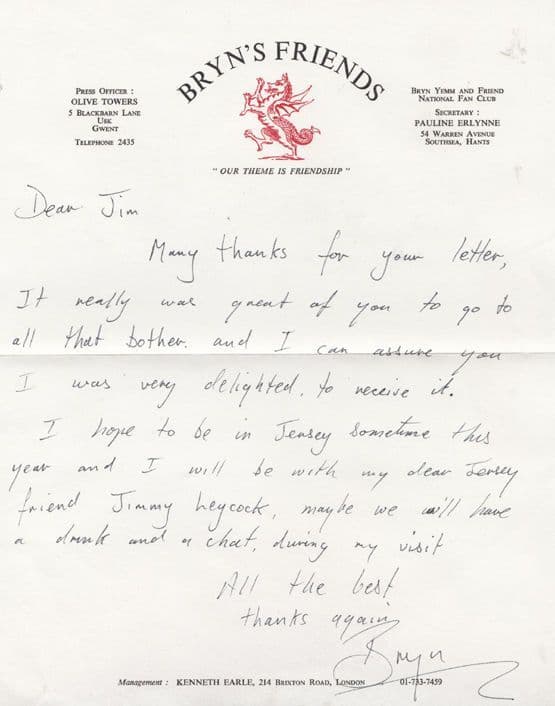 BRYN'S FRIENDS
PRESS OFFICER :
OLIVE TOWERS
5 BLACKBARN LANE
USK
GWENT
TELEPHONE 2435
BRYN YEMM AND FRIEND
NATIONAL FAN CLUB
SECRETARY :
PAULINE ERLYNNE
54 WARREN AVENUE
SOUTHSEA, HANTS
" OUR THEME IS FRIENDSHIP "
Dear Jim
Many thanks for your letter,
It really was great of you to go to
all that bother. and I can assure you
I was very delighted. to receive it.
I hope to be in Jersey sometime this
year and I will be with my dear Jersey
friend Jimmy Heycock, maybe we will have
a drink and a chat, during my visit
All the best
thanks again
Bryn
Management : KENNETH EARLE, 214 BRIXTON ROAD, LONDON 01-733-7459